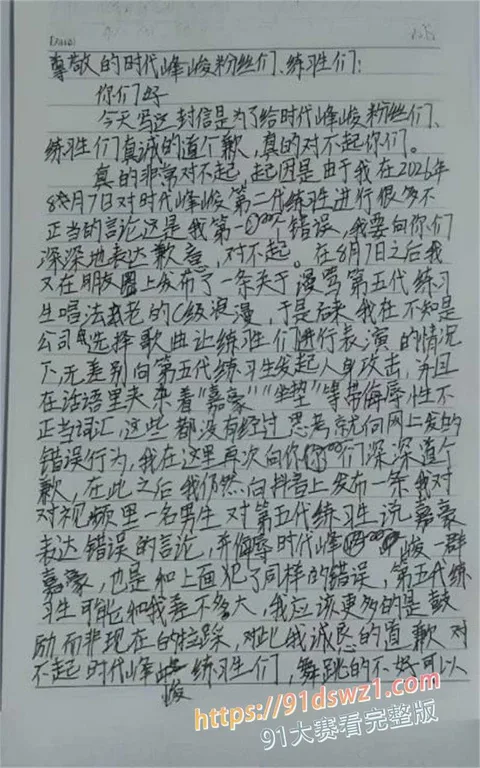 尊敬的时代峰峻粉丝们、练习生们:
你们好
今天写这封信是为了给时代峰峻粉丝们、
练习生们真诚的道个歉,真的对不起你们。
真的非常对不起,起因是由于我在2026年
8月7日对时代峰峻第二代练习生进行很多不
正当的言论这是我第一个错误,我要向你们
深深地表达歉意,对不起。在8月7日之后我
又在朋友圈上发布了一条关于谩骂第五代练习
生唱法老的C级浪漫,于是后来我在不知是
公司选择歌曲让练习生们进行表演的情况
下,无差别向第五代练习生发起人身攻击,并且
在话语里夹杂着“嘉豪”“坐垫”等带侮辱性不
正当词汇,这些都没有经过思考就向网上发的
错误行为,我在这里再次向你们深深道个
歉,在此之后我仍然向抖音上发布一条我对
对视频里一名男生对第五代练习生说嘉豪
表达错误的言论,并侮辱时代峰峻一群
嘉豪,也是和上面犯了同样的错误,第五代练
习生可能和我差不多大,我应该更多的是鼓
励而非现在的拉踩,对此我诚恳的道歉对
不起时代峰峻练习生们,舞跳的不好可以
https://91dswz1.com
91大赛看完整版